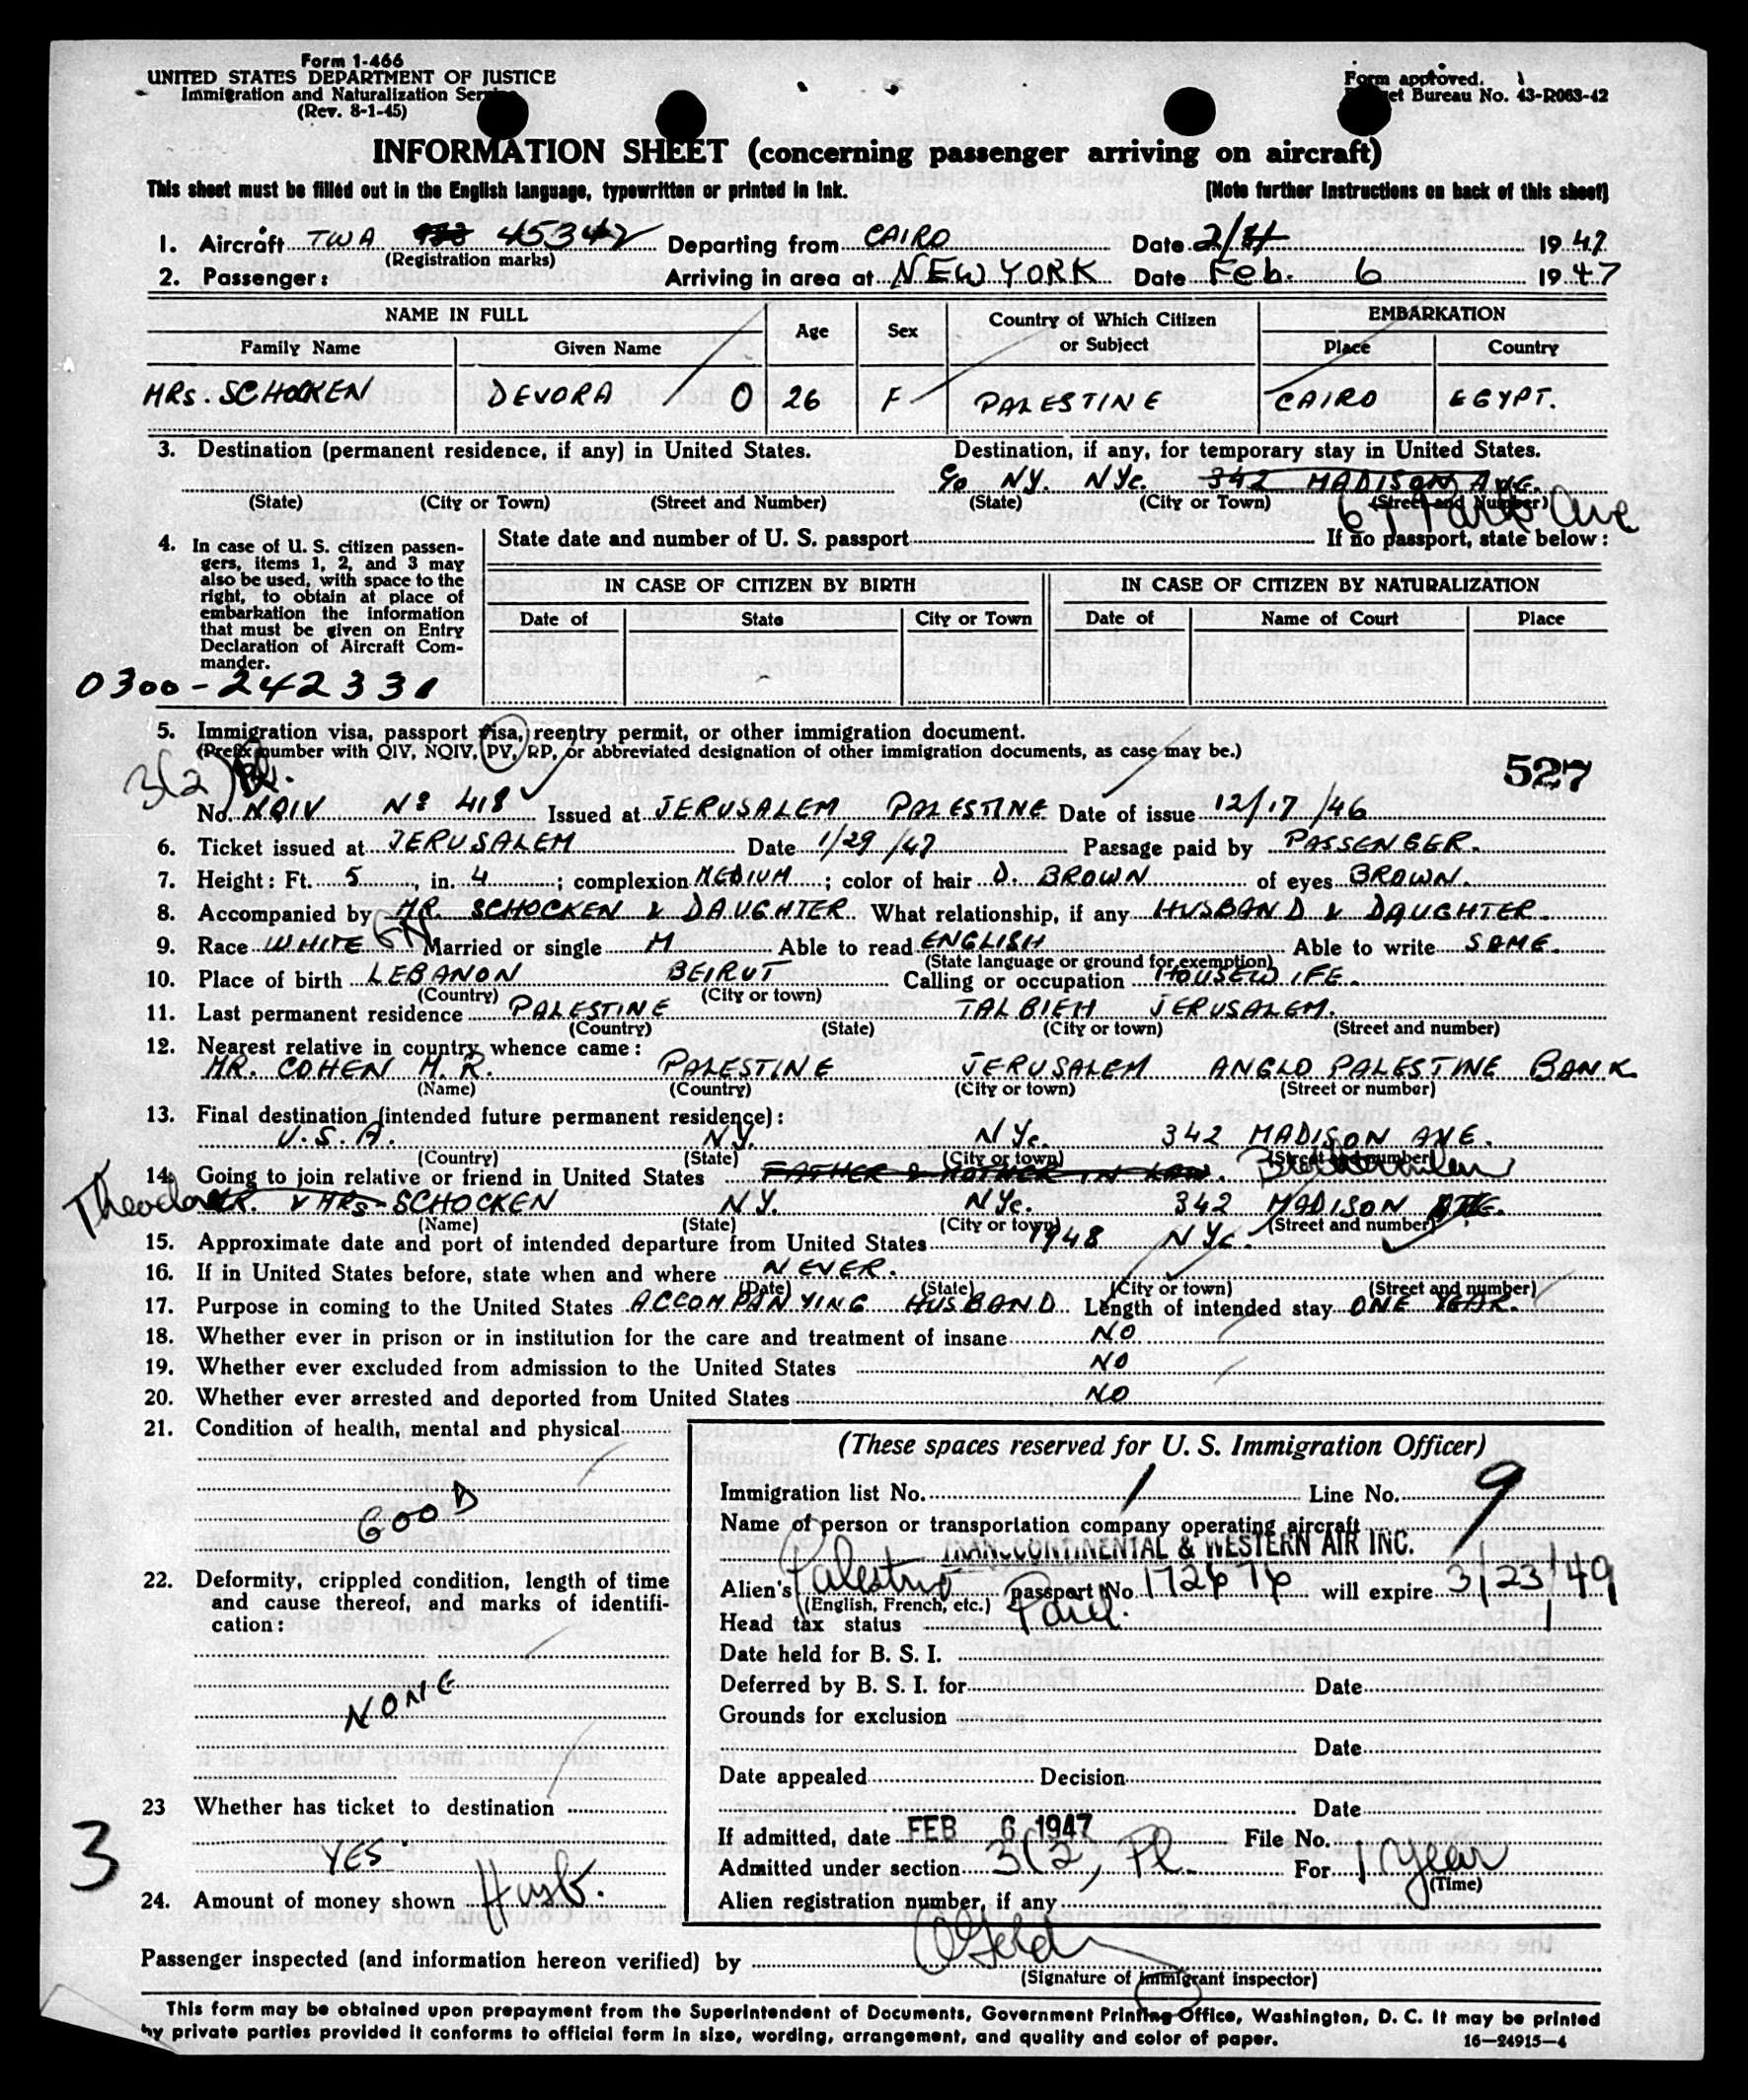 Form I-466
UNITED STATES DEPARTMENT OF JUSTICE
Immigration and Naturalization
(Rev. 8-1-45)
Form approved.
Bureau No. 43-R063-42
INFORMATION SHEET (concerning passenger arriving on aircraft)
This sheet must be filled out in the English language, typewritten or printed in ink.
(Note further instructions on back of this sheet)
1. Aircraft TWA 45342 Departing from CAIRO Date 2/4 1947
(Registration marks)
2. Passenger: Arriving in area at NEW YORK Date Feb. 6 1947
NAME IN FULL Age Sex Country of Which Citizen or Subject EMBARKATION
Family Name Given Name Place Country
MRS. SCHOCKEN DEVORA 0 26 F PALESTINE CAIRO EGYPT.
3. Destination (permanent residence, if any) in United States. Destination, if any, for temporary stay in United States.
c/o NY. NYc. 342 MADISON AVE.
(State) (City or Town) (Street and Number) (State) (City or Town) (Street and Number)
Park Ave
4. In case of U. S. citizen passengers, items 1, 2, and 3 may also be used, with space to the right, to obtain at place of embarkation the information that must be given on Entry Declaration of Aircraft Commander.
State date and number of U. S. passport If no passport, state below:
IN CASE OF CITIZEN BY BIRTH IN CASE OF CITIZEN BY NATURALIZATION
Date of State City or Town Date of Name of Court Place
0300-242331
5. Immigration visa, passport visa, reentry permit, or other immigration document.
(Prefix number with QIV, NQIV, PV, RP, or abbreviated designation of other immigration documents, as case may be.)
527
3(2)
No. NQIV No 418 Issued at JERUSALEM PALESTINE Date of issue 12/17/46
6. Ticket issued at JERUSALEM Date 1/29/47 Passage paid by PASSENGER.
7. Height: Ft. 5, in. 4; complexion MEDIUM; color of hair D. BROWN of eyes BROWN.
8. Accompanied by MR. SCHOCKEN & DAUGHTER. What relationship, if any HUSBAND & DAUGHTER.
9. Race WHITE Married or single M Able to read ENGLISH Able to write SAME.
(State language or ground for exemption)
10. Place of birth LEBANON BEIRUT Calling or occupation HOUSEWIFE.
(Country) (City or town)
11. Last permanent residence PALESTINE TALBIEH JERUSALEM.
(Country) (State) (City or town) (Street and number)
12. Nearest relative in country whence came:
MR. COHEN M.R. PALESTINE JERUSALEM ANGLO PALESTINE BANK.
(Name) (Country) (City or town) (Street or number)
13. Final destination (intended future permanent residence):
U.S.A. N.Y. NYc. 342 MADISON AVE.
(Country) (State) (City or town) (Street and number)
14. Going to join relative or friend in United States FATHER & MOTHER IN LAW.
MR. & MRS. SCHOCKEN NY. NYc. 342 MADISON AVE.
(Name) (State) (City or town) (Street and number)
15. Approximate date and port of intended departure from United States 1948 NYc.
16. If in United States before, state when and where NEVER.
(Date) (State) (City or town) (Street and number)
17. Purpose in coming to the United States ACCOMPANYING HUSBAND Length of intended stay ONE YEAR.
18. Whether ever in prison or in institution for the care and treatment of insane NO
19. Whether ever excluded from admission to the United States NO
20. Whether ever arrested and deported from United States NO
21. Condition of health, mental and physical
GOOD
22. Deformity, crippled condition, length of time and cause thereof, and marks of identification:
NONE
23 Whether has ticket to destination
YES
3
24. Amount of money shown Husb.
(These spaces reserved for U. S. Immigration Officer)
Immigration list No. 1 Line No. 9
Name of person or transportation company operating aircraft
TRANSCONTINENTAL & WESTERN AIR INC.
Alien's Palestine passport No 172676 will expire 3/23/49
(English, French, etc.)
Head tax status Paid.
Date held for B. S. I.
Deferred by B. S. I. for Date
Grounds for exclusion
Date
Date appealed Decision
Date
If admitted, date FEB 6 1947 File No.
Admitted under section 3(2) Pl. For 1 year
(Time)
Alien registration number, if any
Passenger inspected (and information hereon verified) by
(Signature of immigrant inspector)
This form may be obtained upon prepayment from the Superintendent of Documents, Government Printing Office, Washington, D. C. It may be printed
by private parties provided it conforms to official form in size, wording, arrangement, and quality and color of paper. 16—24915-4